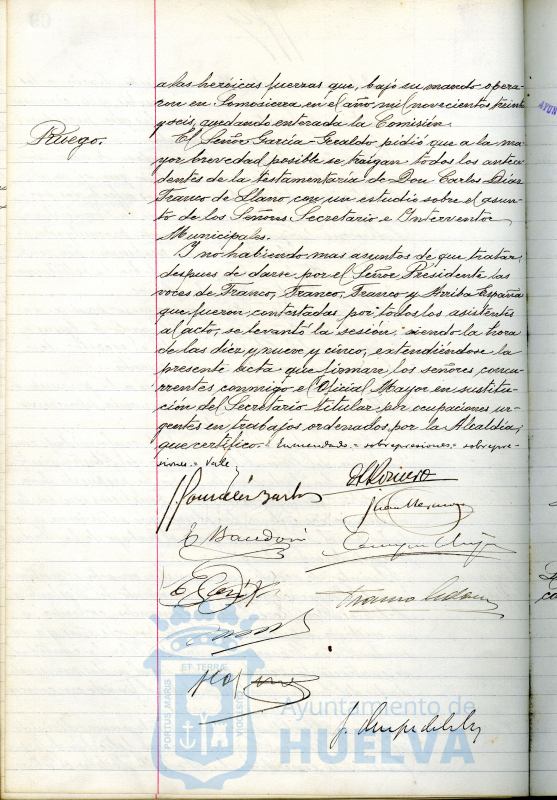 a las heróicas fuerzas que, bajo su mando opera-
ron en Somosierra, en el año mil novecientos treinta
y seis, quedando enterada la Comisión.
Ruego.
El Señor García-Geraldo pidió que a la ma-
yor brevedad posible se traigan todos los antece-
dentes de la testamentaría de Don Carlos Díaz
Franco de Llano, con un estudio sobre el asun-
to de los Señores Secretario e Interventor
Municipales.
Y no habiendo mas asuntos de que tratar,
despues de darse por el Señor Presidente las
voces de Franco, Franco, Franco y Arriba España
que fueron contestadas por todos los asistentes
al acto, se levantó la sesión, siendo la hora
de las diez y nueve y cinco, extendiéndose la
presente acta que firman los señores concu-
rrentes conmigo el Oficial Mayor en sustitu-
ción del Secretario titular, por ocupaciones ur-
gentes en trabajos ordenados por la Alcaldía,
que certifico.- Enmendado = sobre presiones = sobre pre-
siones = Vale
PORTUS MARIS
ET TERRAE
CUSTODIA
Ayuntamiento de
HUELVA